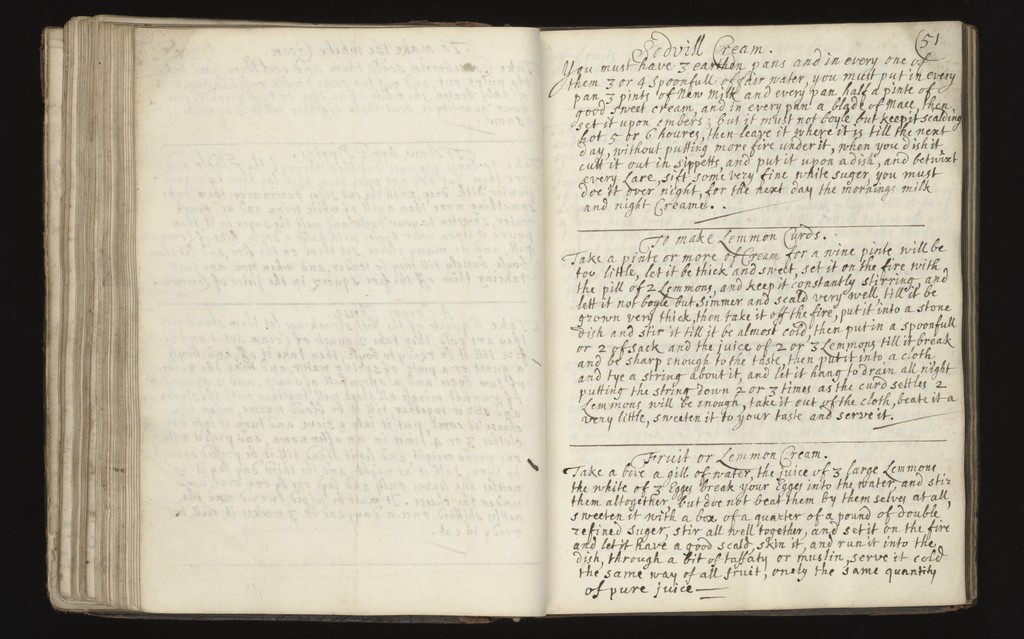 (51
Cream.
You must have 3 earthen pans and in every one of
them 3 or 4 spoonfull of fair water, you must put in every
pan 3 pints of New Milk and every pan half a pinte of
good sweet cream, and in every pan a blade of Mace, then
set it upon embers; but it must not boyle but keep it scalding
hot 5 or 6 houres, then leave it where it is till the next
day, without putting more fire under it, when you dish it
cutt it out in sippetts and put it upon a dish, and betwixt
every Lare, sift some very fine white suger, you must
doe it over night, for the next day the mornings milk
and night Creame..
To make Lemmon Curds.
Take a pinte or more of Cream for a wine pinte will be
too little, let it be thick and sweet, set it on the fire with
the pill of 2 Lemmons, and keep it constantly stirring, and
lett it not boyle but simmer and scald very well, till it be
grown very thick, then take it off the fire, put it into a stone
dish and stir it till it be almost cold, then put in a spoonfull
or 2 of sack, and the juice of 2 or 3 Lemmons till it break
and be sharp enough to the taste, then put it into a cloth
and tye a string about it, and let it hang to drain all night
putting the string down 2 or 3 times as the curd settles 2
Lemmons will be enough, take it out of the cloth, beate it a
very little, sweeten it to your taste and serve it.
Fruit or Lemmon Cream.
Take a bove a gill of water, the juice of 3 large Lemmons
the white of 3 Eggs break your Eggs into the water, and stir
them altogether, but doe not beat them by them selves at all,
sweeten it with a box of a quarter of a pound of double
refined suger, stir all well together, and set it on the fire
and let it have a good scald, skin it, and run it into the
dish, through a bit of taffaty or muslin, serve it cold
the same way of all fruit, onely the same quantity
of pure juice—